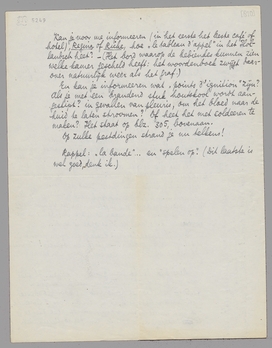 Kan je voor me informeeren (in het eerste het beste café of
hotel), Regina of Ruha, hoe „le tableau d'appel" in het Hol-
landsch heet? – (Het bord waarop de bedienden kunnen zien
welke kamer gescheld heeft: het woordenboek zwijgt daar-
over natuurlijk weer als het graf.)
En kan je informeeren wat „points d'ignition" zijn?
Als je met een brandend stuk houtskool wordt aan-
geraakt? in gevallen van pleuris, om het bloed naar de
huid te laten stroomen? Of heeft het met soldeeren te
maken? Het staat op blz. 305, bovenaan.
Op zulke pestdingen strand je nu telkens!
Rappel: „la bande"... en „spelen op"? (Dit laatste is
wel goed, denk ik.)